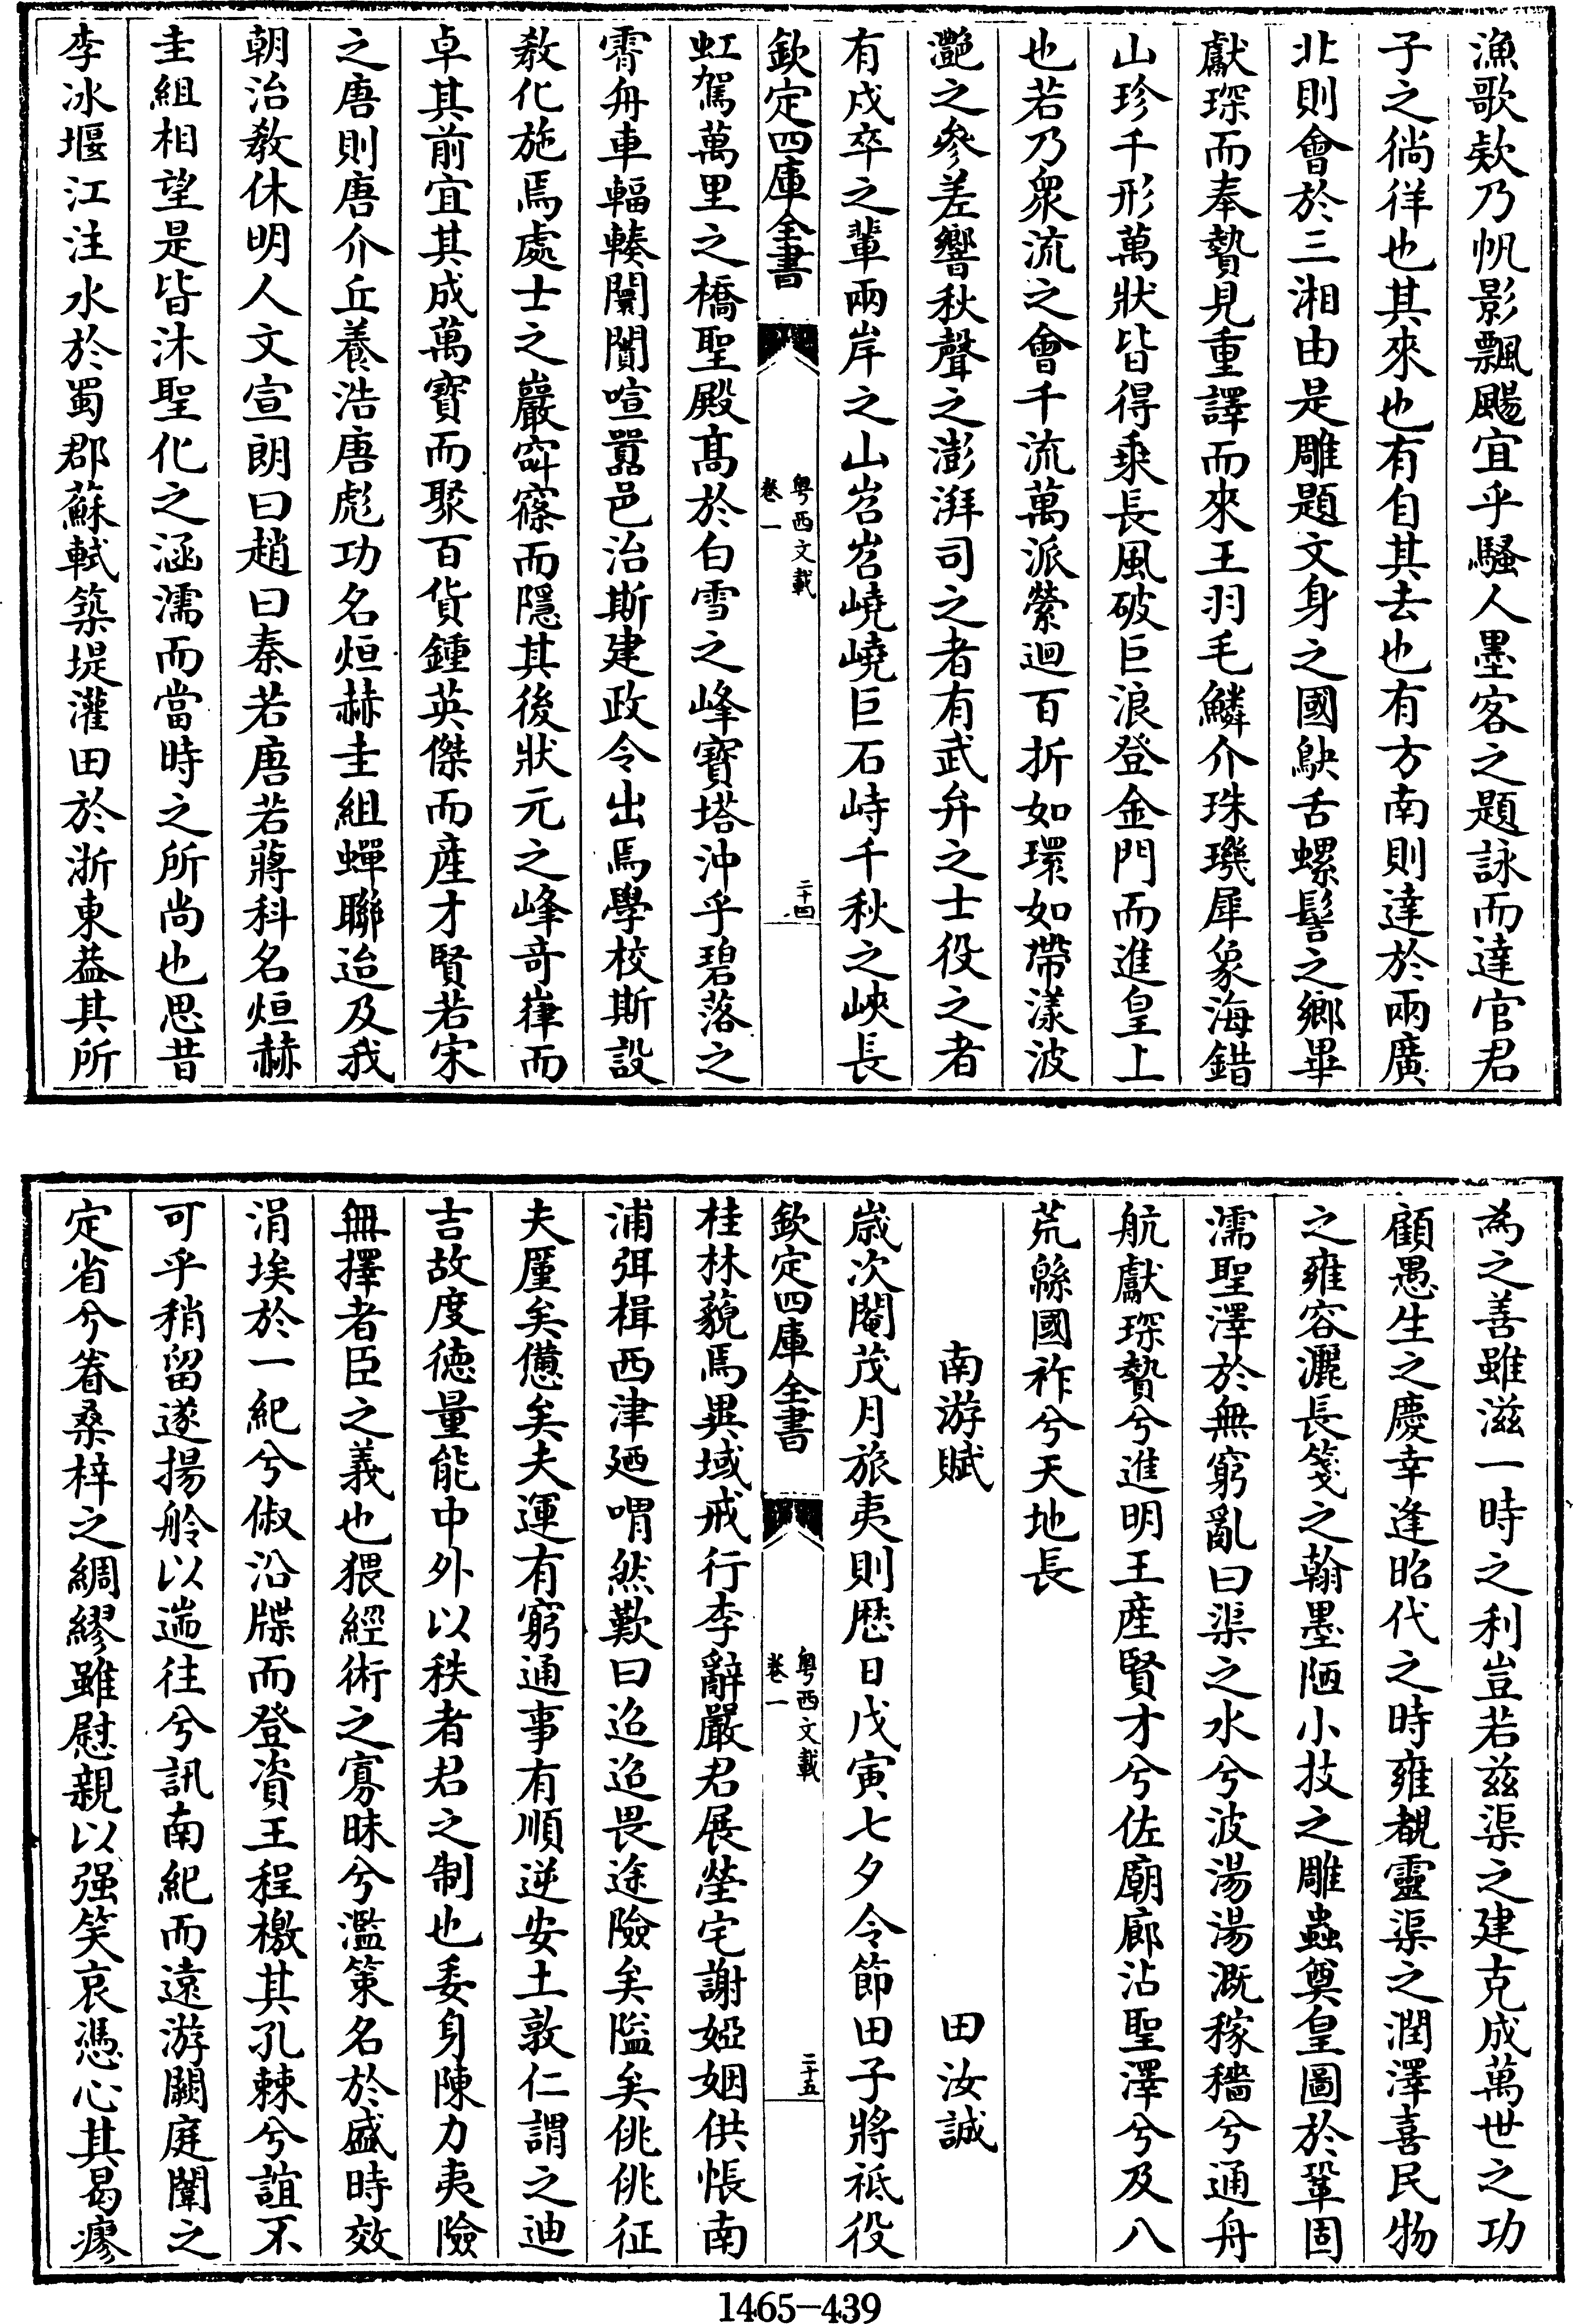 漁歌欸乃帆影飄颺宜乎騷人墨客之題詠而達官君
子之徜徉也其來也有自其去也有方南則達於兩廣
北則會於三湘由是雕題文身之國鴃舌螺髻之鄉畢
獻琛而奉贄見重譯而來王羽毛鱗介珠璣犀象海錯
山珍千形萬狀皆得乗長風破巨浪登金門而進皇上
也若乃衆流之會千流萬派縈迴百折如環如帶漾波
灔之參差響秋聲之澎湃司之者有武弁之士役之者
有戍卒之輩兩岸之山岧岧嶢嶢巨石峙千秋之峽長
欽定四庫全書
粤西文載
卷一
二十四
虹駕萬里之橋聖殿髙於白雪之峰寳塔沖乎碧落之
霄舟車輻輳闤闠喧囂邑治斯建政令出焉學校斯設
敎化施焉處士之巖窅窱而隱其後狀元之峰竒嵂而
卓其前宜其成萬寳而聚百貨鍾英傑而産才賢若宋
之唐則唐介丘養浩唐彪功名烜赫圭組蟬聯迨及我
朝治敎休明人文宣朗曰趙曰秦若唐若蔣科名烜赫
圭組相望是皆沐聖化之涵濡而當時之所尚也思昔
李冰堰江注水於蜀郡蘇軾築堤灌田於浙東葢其所
為之善雖滋一時之利豈若兹渠之建克成萬世之功
顧愚生之慶幸逢昭代之時雍覩靈渠之潤澤喜民物
之雍容灑長箋之翰墨陋小技之雕蟲奠皇圖於鞏固
濡聖澤於無窮亂曰渠之水兮波湯湯溉稼穡兮通舟
航獻琛贄兮進明王産賢才兮佐廟廊沾聖澤兮及八
荒緜國祚兮天地長
南游賦　田汝誠
歲次閹茂月旅夷則厯日戊寅七夕令節田子將祗役
欽定四庫全書
粤西文載
卷一
二十五
桂林藐焉異域戒行李辭嚴君展塋宅謝婭姻供悵南
浦弭楫西津廼喟然歎曰迢迢畏途險矣隘矣佻佻征
夫厪矣憊矣夫運有窮通事有順逆安土敦仁謂之迪
吉故度徳量能中外以秩者君之制也委身陳力夷險
無擇者臣之義也猥經術之寡昧兮濫策名於盛時效
涓埃於一紀兮俶沿牒而登資王程檄其孔棘兮誼不
可乎稍留遂揚舲以遄往兮訊南紀而遠游闕庭闈之
定省兮眷桑梓之綢繆雖慰親以强笑哀憑心其曷瘳
1465-439